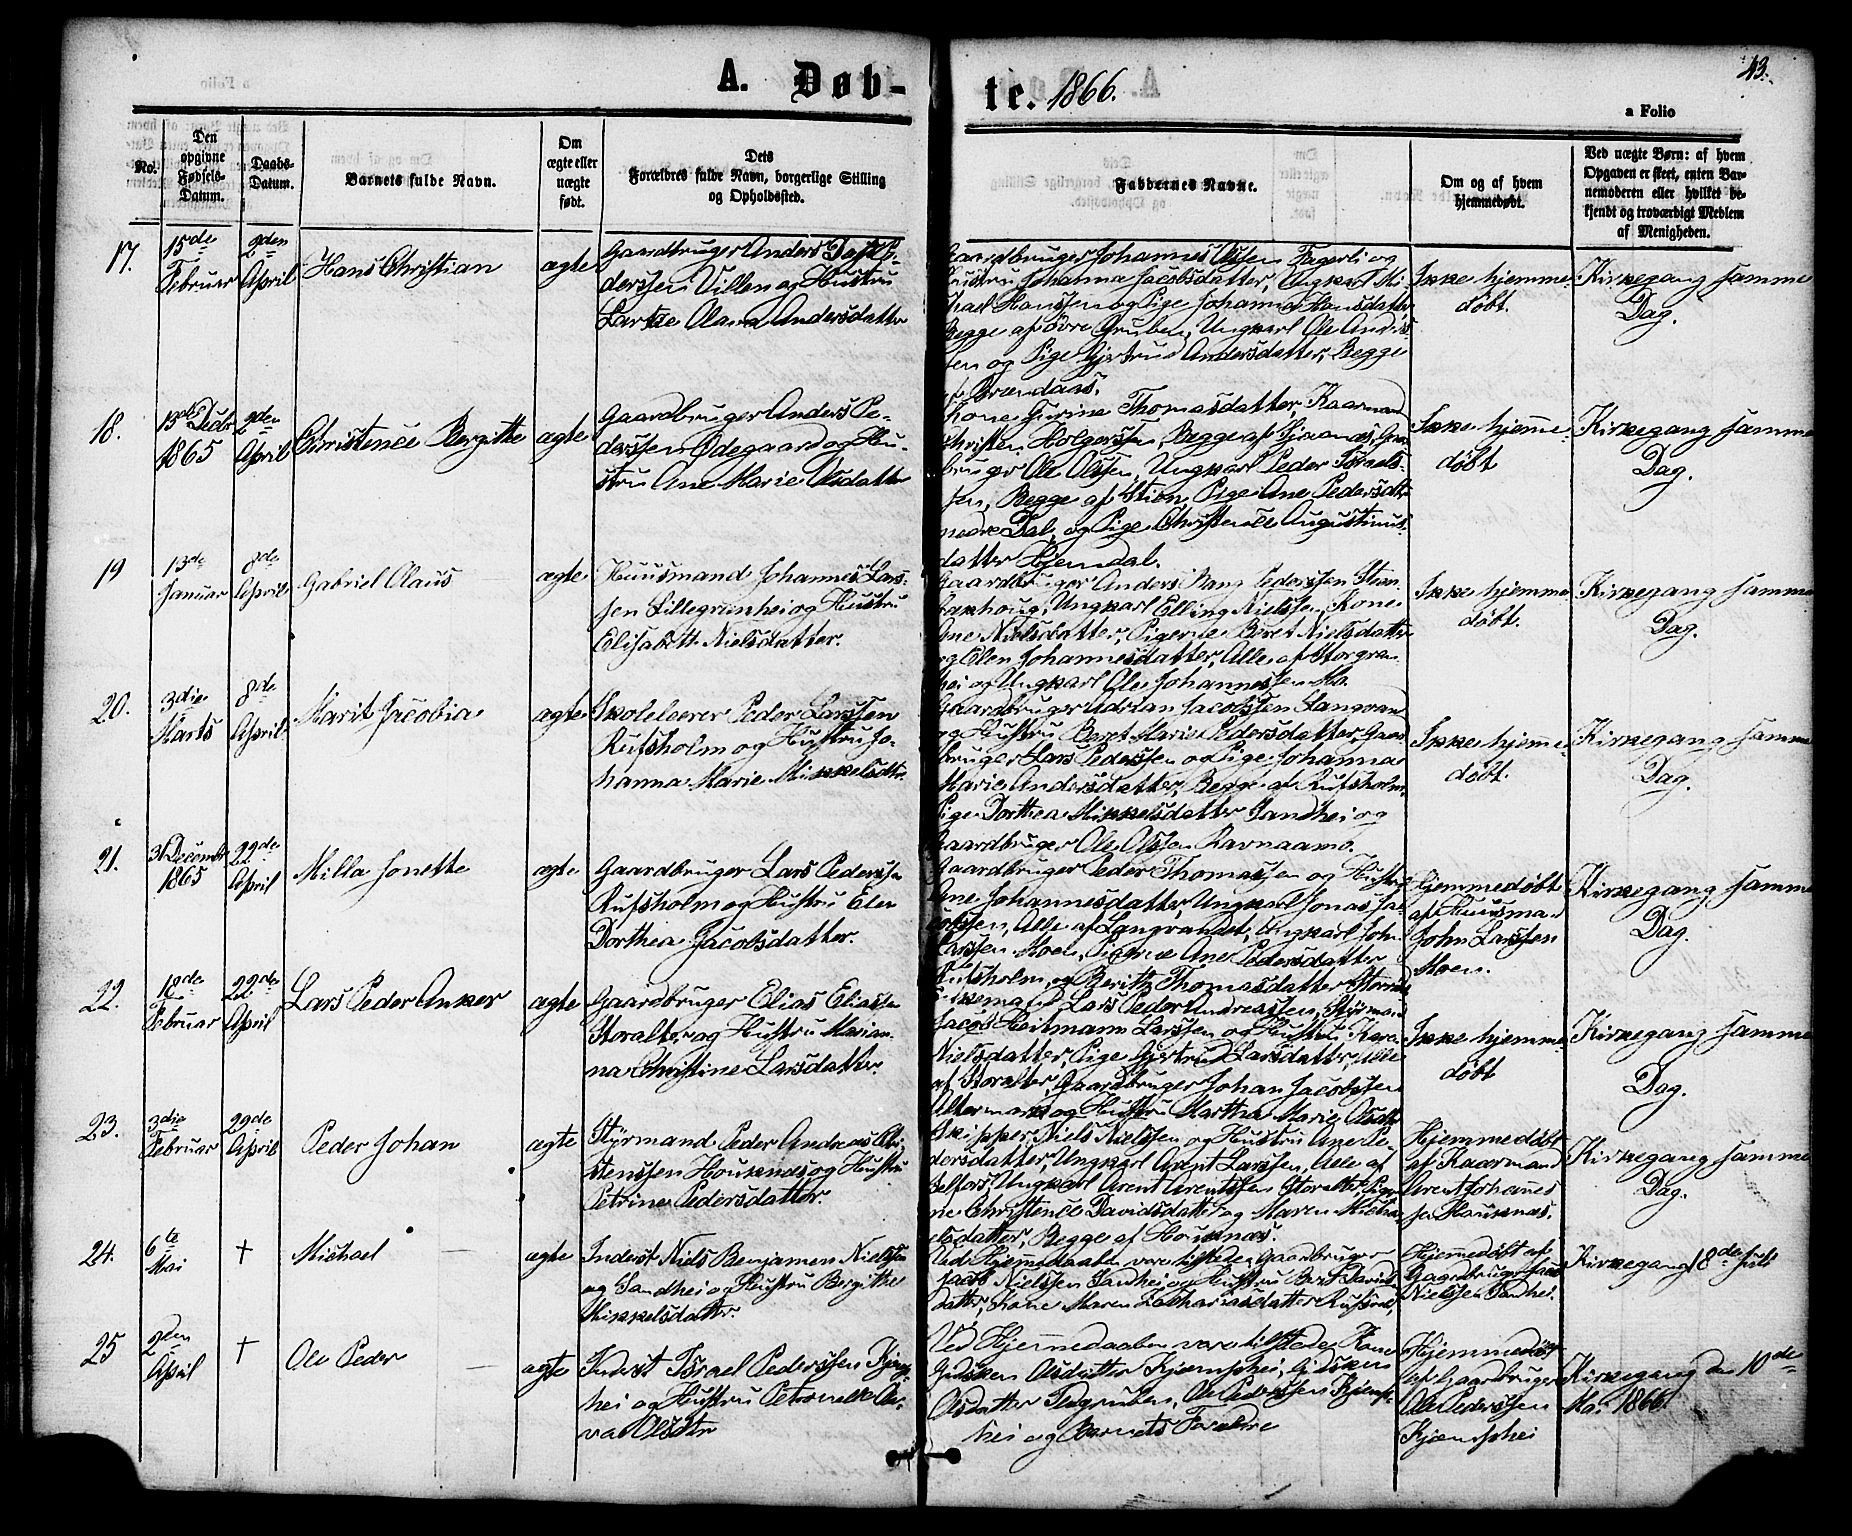 A. Døb-
te. 1866.
43.
a Folio
No.
Den opgivne Fødsels-Datum.
Daabs-Datum.
Barnets fulde Navn.
Om ægte eller uægte født.
Dets
Forældres fulde Navn, borgerlige Stilling
og Opholdssted.
Faddernes Navne.
Om og af hvem
hjemmedøbt.
Ved uægte Børn: af hvem
Opgaven er skeet, enten Bar-
nemoderen eller hvilket be-
kjendt og troværdigt Medlem
af Menigheden.
17.
15de
Februar
2den
April
Hans Christian
ægte
Gaardbruger Anders Dass Pe-
derssen Villen og Hustru
Olava Andersdatter
Gaardbruger Johannes Olssen Fagerli og
Hustru Johanna Jacobsdatter, Ungkarl Mi-
chael Hanssen og Pige Johanna Hansdatter
Begge af Øvre Gruben, Ungkarl Ole Andis-
sen og Pige Gjertrud Andersdatter, Begge
af Brændaas.
Ikke hjemme-
døbt.
Kirkegang samme
Dag.
18.
15de Decbr
1865
2den
April
Christence Bergitte
ægte
Gaardbruger Anders Pe-
derssen Ødegaard og Hu-
stru Ane Marie Olsdatter
Kone Gurine Thomasdatter, Kaarmand
Christen Holgerssen, Begge af
bruger Ole Olssen, Ungkarl Peder Israels-
sen, Begge af Stien, Pige Ane Pedersdtr
nedre Dal, og Pige Christence Augustinus-
datter Hjemdal.
Ikke hjemme-
døbt
Kirkegang samme
Dag.
19
13de
Januar
8de
April
Gabriel Olaus
ægte
Huusmand Johannes Lars-
sen Lillegrønhei og Hustru
Elisabeth Nielsdatter.
Gaardbruger Anders Pederssen
Ungkarl Elling Nielssen, Kone
Ane Nielsdatter, Pigerne Beret Nielsdatter
og Elen Johannesdatter, Alle af Storgrøn-
hei og Ungkarl Ole Johannessen Mo.
Ikke hjemme-
døbt.
Kirkegang samme
Dag.
20.
3die
Marts
8de
April
Marit Jacobia
ægte
Skolelærer Peder Larssen
Rufsholm og Hustru Jo-
hanna Marie Mikkelsdtr.
Gaardbruger Adrian Jacobssen Langvand
og Hustru Beret Marie Pedersdatter, Gaard-
bruger Lars Pederssen og Pige Johanna
Marie Andersdatter, Begge af Rufsholm,
Pige Dorthea Mikkelsdatter Sandhei og
Gaardbruger Ole Olssen Ravnaamo.
Ikke hjemme-
døbt.
Kirkegang samme
Dag.
21.
31 Decembr
1865
22de
April
Milla Jonette
ægte
Gaardbruger Lars Pederssen
Rufsholm og Hustru Elen
Dorthea Jacobsdatter.
Gaardbruger Peder Thomassen og Hustru
Ane Johannesdatter, Ungkarl Jonas Ja-
cobssen, Alle af Langvandet, Ungkarl John
Larssen Moen, Pigerne Ane Pedersdatter
Rufsholm, og Beritha Thomasdatter
Hjemmedøbt
af Huusmand
John Larssen
Moen.
Kirkegang samme
Dag.
22.
18de
Februar
22de
April
Lars Peder Anker
ægte
Gaardbruger Elias Eliassen
Storalter og Hustru Marian-
na Christine Larsdatter.
Lars Peder Andreassen, Styrmand
Jacob Heitmann Larssen og Hustru Karen
Nielsdatter, Pige Gjertrud Larsdatter, Alle
af Storalter, Gaardbruger Johan Jacobssen
Altermark og Hustru Martha Marie Olsdtr
Ikke hjemme-
døbt
Kirkegang samme
Dag.
23.
3die
Februar
29de
April
Peder Johan
ægte
Styrmand Peder Andreas Chri-
stenssen Houknes og Hustru
Petrine Pedersdatter.
Skipper Niels Nielssen og Hustru Ane Pe-
dersdatter, Ungkarl Arent Larssen, Alle af
Selfors, Ungkarl Arent Arentssen Storalter, Piger-
ne Christence Davidsdatter og Maren Micha-
elsdatter, Begge af Houknes.
Hjemmedøbt
af Kaarmand
Arent Johannes
sen Houknes.
Kirkegang samme
Dag.
24.
6te
Mai
†
Michael
ægte
Inderst Niels Benjamen Nielssen
Sandhei og Hustru Bergitte
Mikkelsdatter.
Ved Hjemmedaaben vare tilstede: Gaardbruger
Jacob Nielssen Sandhei og Hustru Beret Davids-
datter, Kone Maren Zachariasdatter
Hjemmedøbt af
Gaardbruger Jacob
Nielssen Sandhei.
Kirkegang 18de Juli
25
2den
April
†
Ole Peder
ægte
Inderst Israel Pederssen Kjems-
hei og Hustru Petronelle Oli-
va Olsdtr
Ved Hjemmedaaben vare tilstede: Kone
Gidsken Olsdatter Kjemshei, Gidsken
Olsdatter Ole Pederssen Kjems-
hei og Barnets Forældre
Hjemmedøbt
af Gaardbruger
Ole Pederssen
Kjemshei
Kirkegang den 10de
Mai 1866